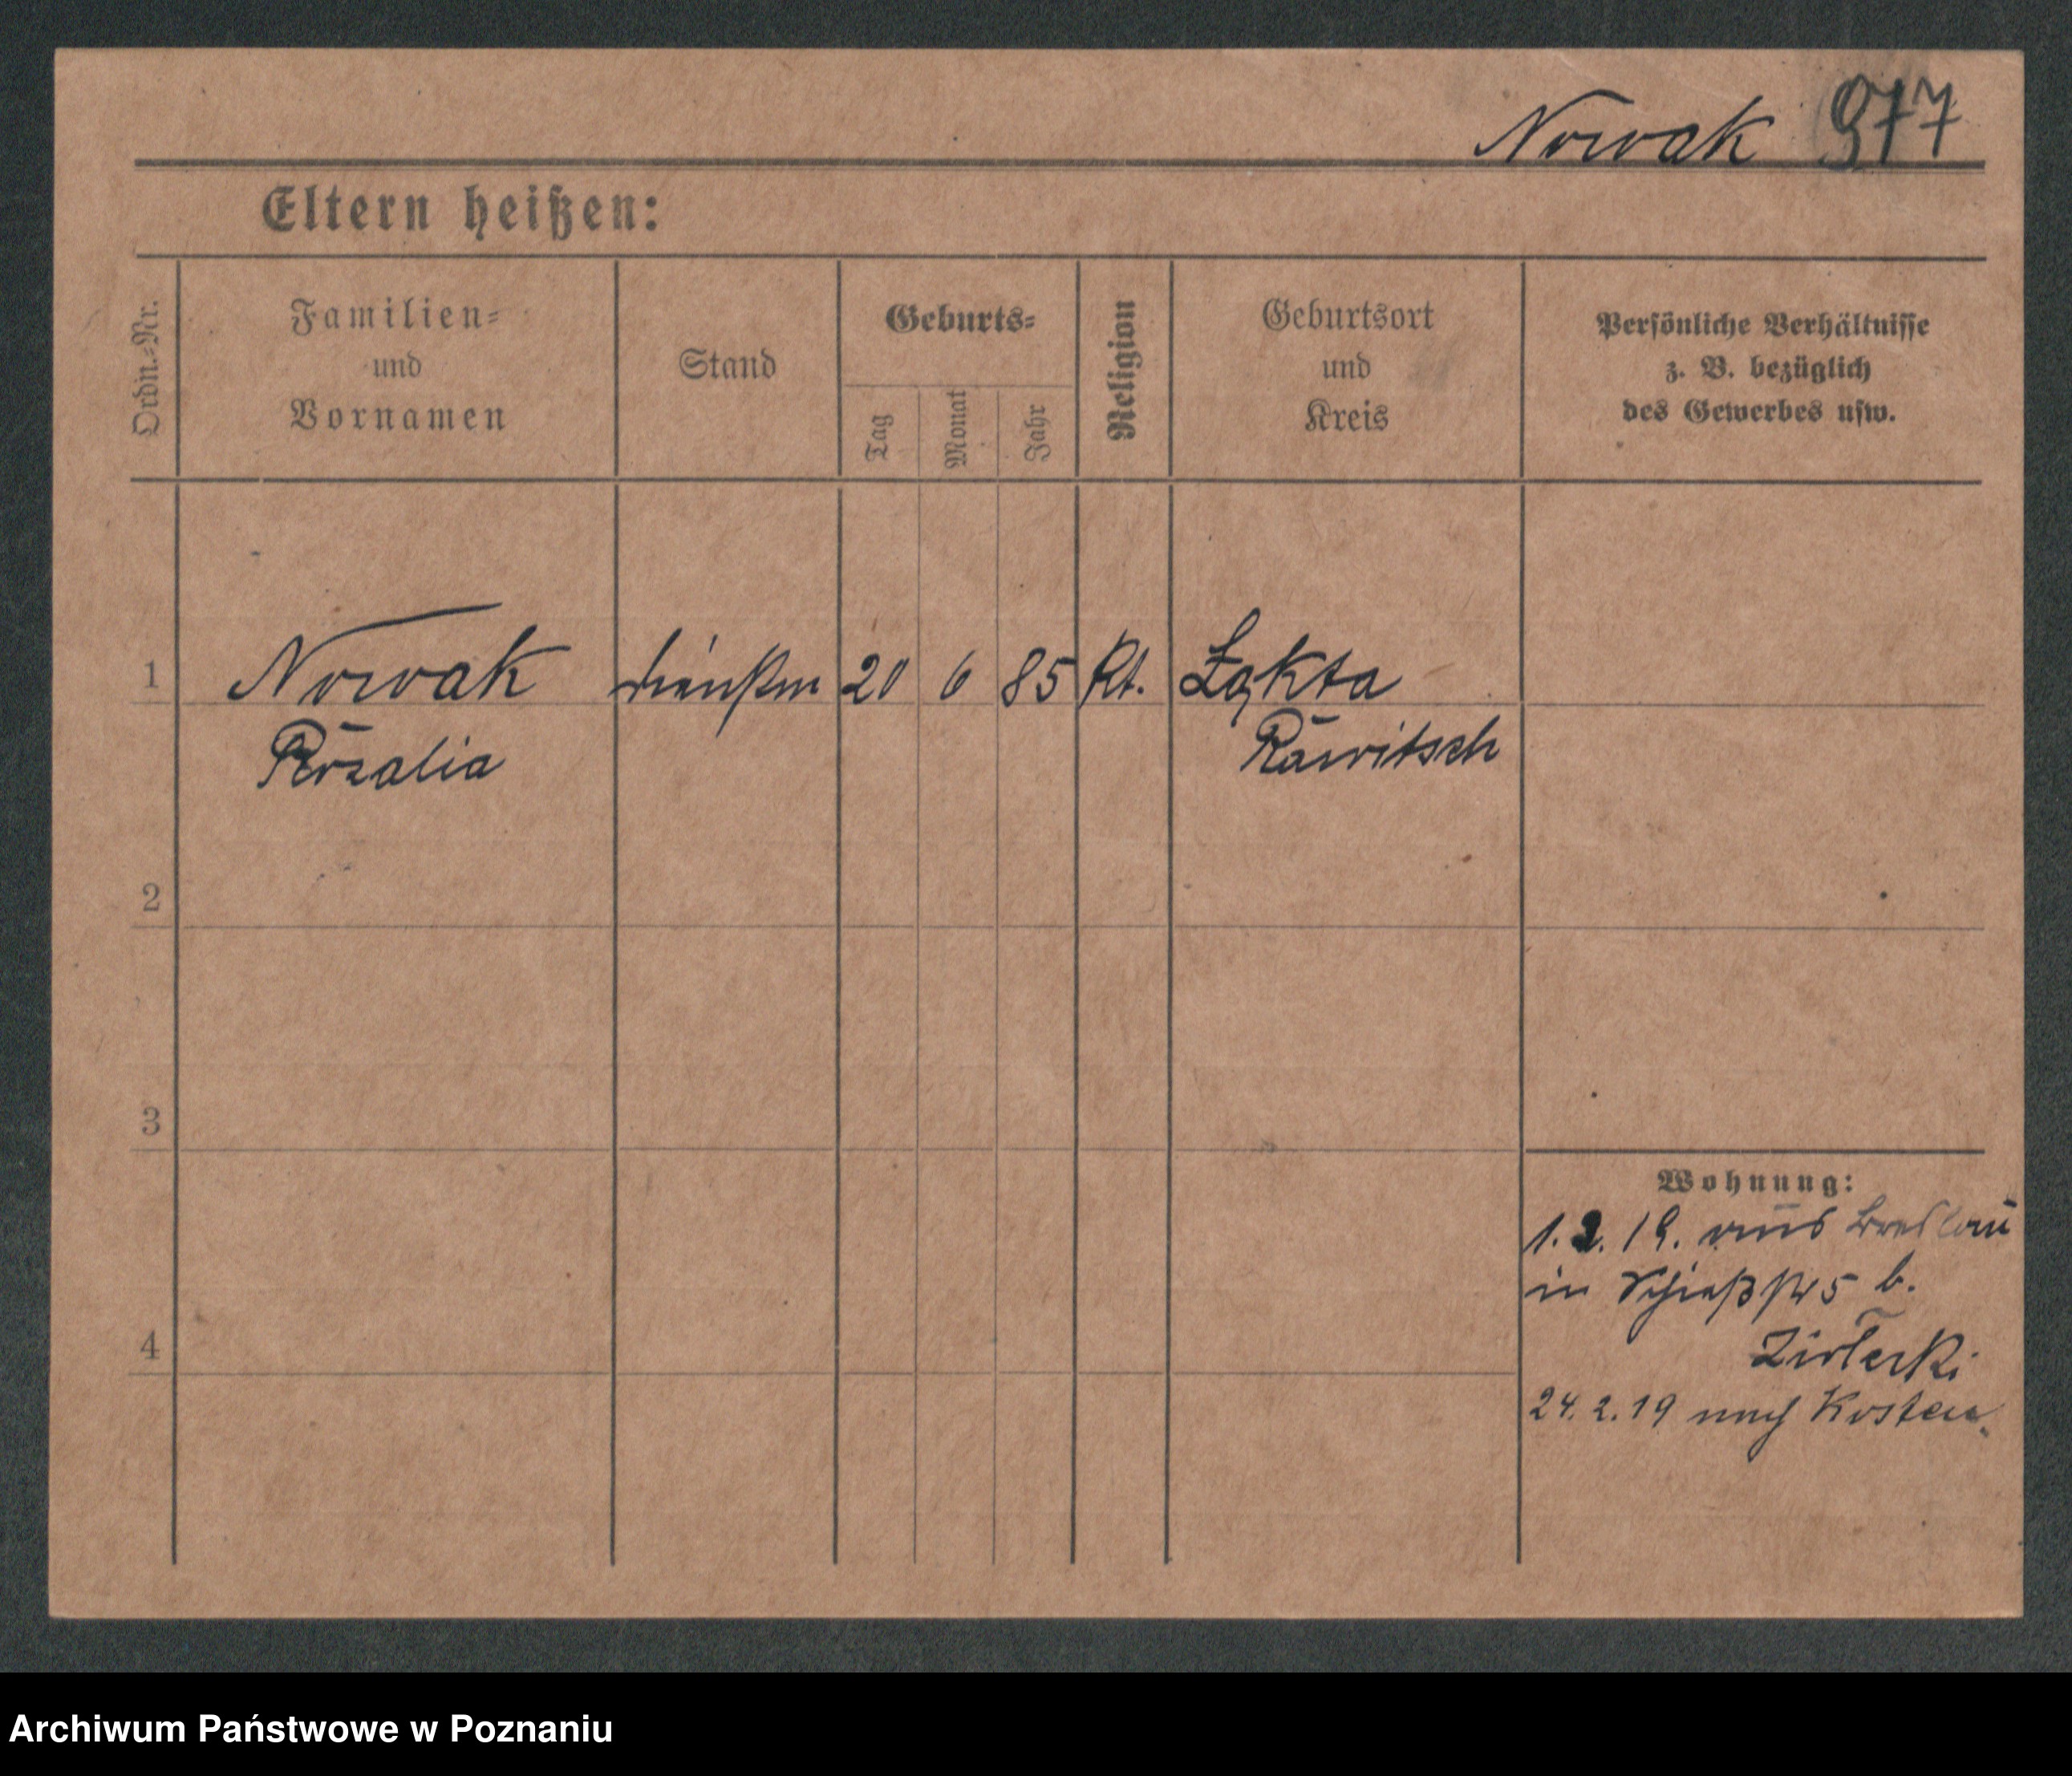 Nowak 977
Eltern heißen:
Ordn.-Nr.
Familien-
und
Vornamen
Stand
Geburts-
Tag
Monat
Jahr
Religion
Geburtsort
und
Kreis
Persönliche Verhältnisse
z. B. bezüglich
des Gewerbes usw.
1 Nowak 20 6 85 kt. Łąkta
Rozalia Rawitsch
2
3
4
Wohnung:
1. 2. 19. aus Breslau
in Schießstr 5 b.
24. 2. 19 nach Kosten.
Archiwum Państwowe w Poznaniu